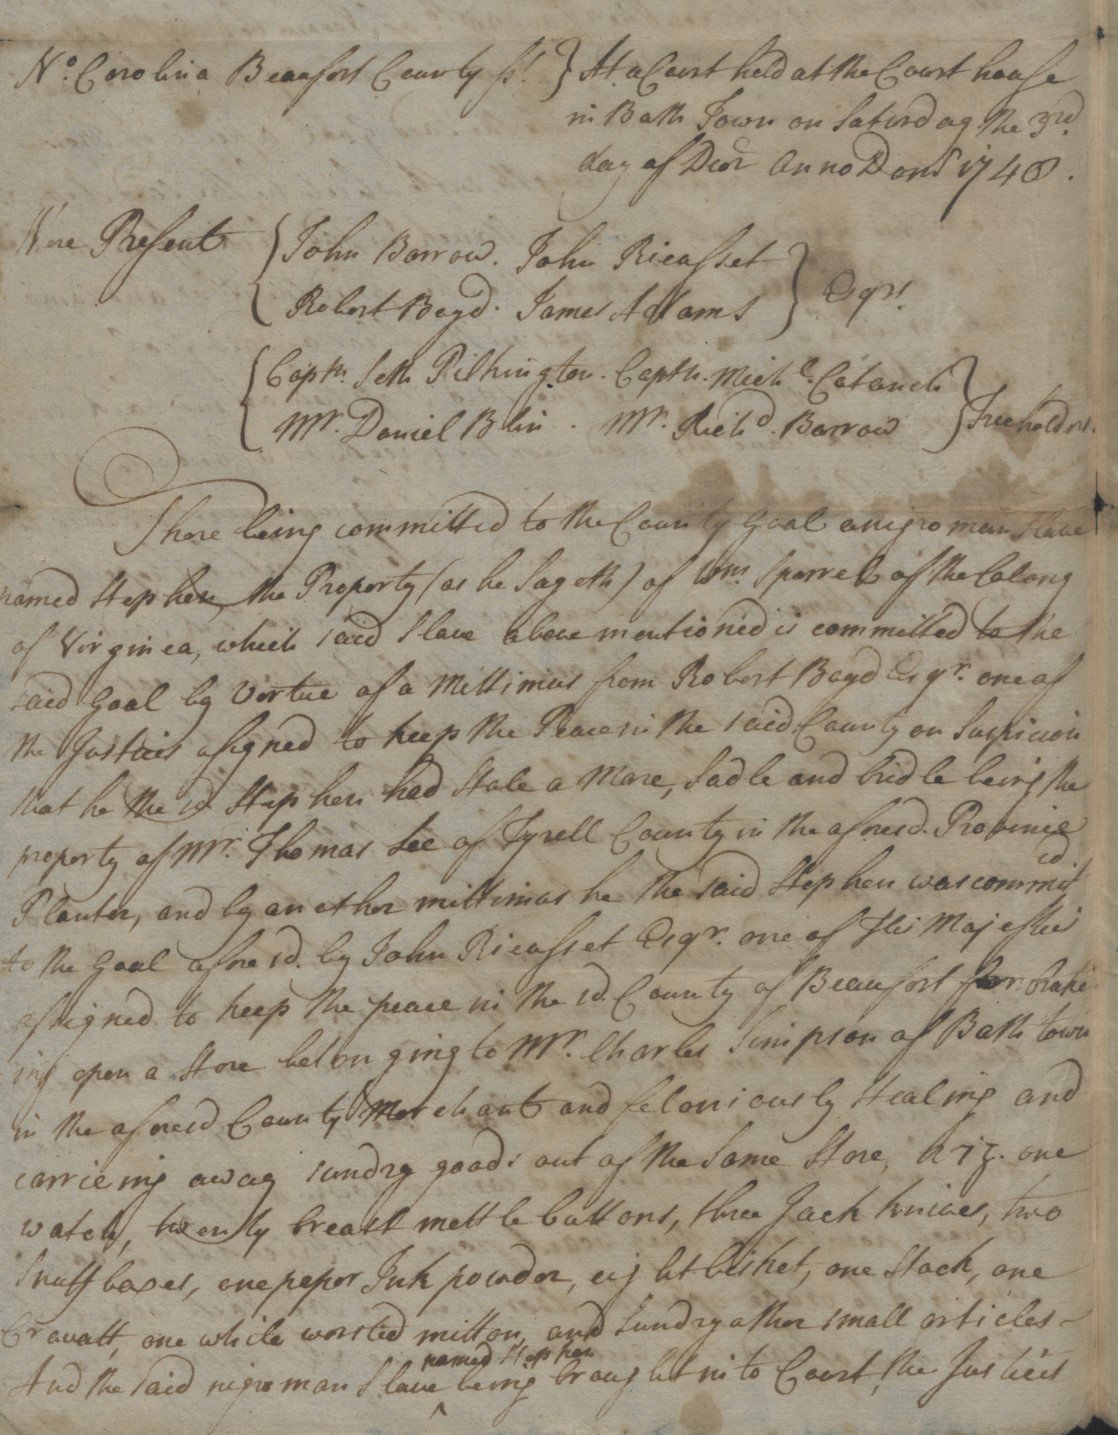 No. Carolina Beaufort County ss. } At a Court held at the Court house
in Bath Town on Saturday the 3rd.
day of Decr Anno Doni 1748.
Were Present { John Barrow. John Rieusset
Robert Boyd. James Adams } Esqrs.
{ Captn. Seth Pilkington. Captn. Michl. Cotanch
Mr. Daniel Blin. Mr. Richd. Barrow } Freeholders.
There being committed to the County Goal a negro man Slave
named Stephen, the Property (as he Sayeth) of Wm. Sparrel of the Colony
of Virginea, which said Slave above mentioned is committed to the
said Goal by Vertue of a Mittimus from Robert Boyd Esqr. one of
the Justices assigned to keep the Peace in the said County on Suspicion
that he the sd Stephen had Stole a Mare, Sadle and bridle being the
property of Mr. Thomas Lee of Tyrell County in the aforesd. Province
Planter, and by another mittimus he the said Stephen was committd
to the Goal aforesd. by John Rieusset Esqr. one of His Majesties
assigned to keep the peace in the sd. County of Beaufort for brake
ing open a Store belonging to Mr. Charles Simpson of Bath town
in the aforesd County Merchant and feloniously Stealing and
carrieing away sundry goods out of the Same Store, Viz. one
watch, twenly breast mettle buttons, three Jack knives, two
Snuff boxes, one peper Ink powder, eight bisket, one Stock, one
Cravatt, one white worsted mitton, and Sundry other small articles -
named Stephen
And the said negro man Slave ^ being brought into Court, the Justices